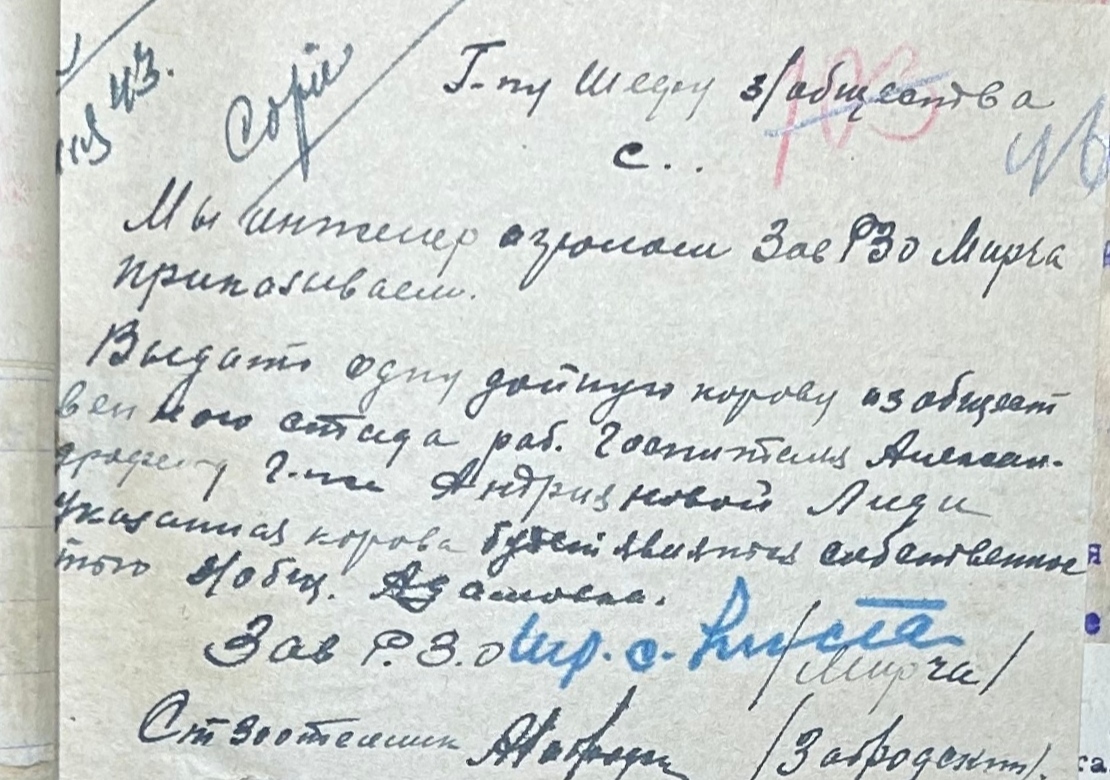 43.
Copie
Г-ну Шефу з/общества
103
с. .
Мы инженер агроном Зав РЗО Мирча
приказываем.
Выдать одну дойную корову из общест
венного стада раб. Госпиталя Алексан-
дрфельд г-же Андрияновой Лиди
Указанная корова будет являться собственнос
тью з/общ. Адамовка.
Зав Р.З.О /Мирча/
Ст зоотехник /Забродский/